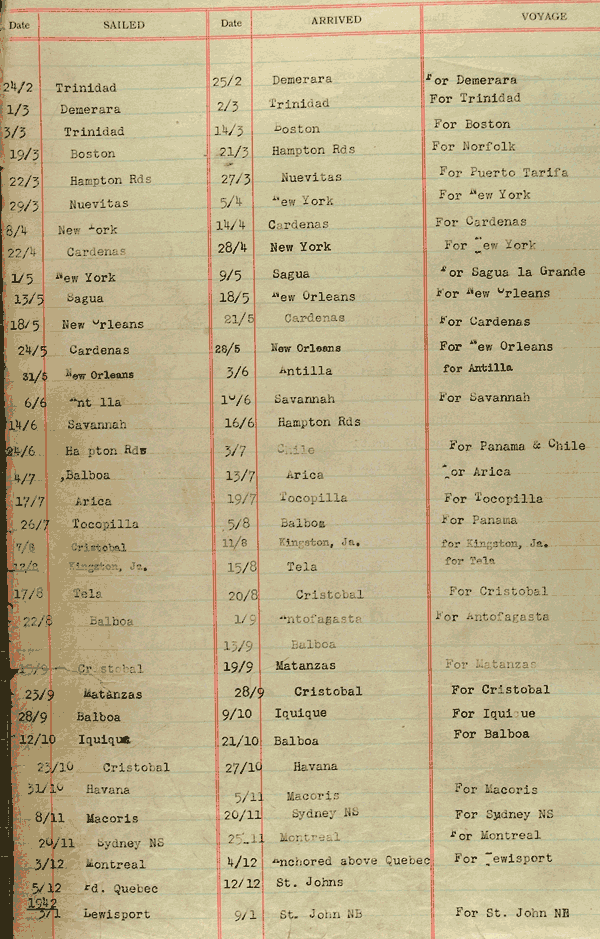 Date SAILED Date ARRIVED VOYAGE
24/2 Trinidad 25/2 Demerara For Demerara
1/3 Demerara 2/3 Trinidad For Trinidad
3/3 Trinidad 14/3 Boston For Boston
19/3 Boston 21/3 Hampton Rds For Norfolk
22/3 Hampton Rds 27/3 Nuevitas For Puerto Tarifa
29/3 Nuevitas 5/4 New York For New York
8/4 New York 14/4 Cardenas For Cardenas
22/4 Cardenas 28/4 New York For New York
1/5 New York 9/5 Sagua For Sagua la Grande
13/5 Sagua 18/5 New Orleans For New Orleans
18/5 New Orleans 21/5 Cardenas For Cardenas
24/5 Cardenas 28/5 New Orleans For New Orleans
31/5 New Orleans 3/6 Antilla for Antilla
6/6 Ant lla 10/6 Savannah For Savannah
14/6 Savannah 16/6 Hampton Rds
24/6 Ha pton Rds 3/7 Chile For Panama & Chile
4/7 ,Balboa 13/7 Arica For Arica
17/7 Arica 19/7 Tocopilla For Tocopilla
26/7 Tocopilla 5/8 Balboa For Panama
7/8 Cristobal 11/8 Kingston, Ja. for Kingston, Ja.
12/8 Kingston, Ja. 15/8 Tela for Tela
17/8 Tela 20/8 Cristobal For Cristobal
22/8 Balboa 1/9 Antofagasta For Antofagasta
13/9 Balboa
Cristobal 19/9 Matanzas For Matanzas
23/9 Matanzas 28/9 Cristobal For Cristobal
28/9 Balboa 9/10 Iquique For Iquique
12/10 Iquique 21/10 Balboa For Balboa
23/10 Cristobal 27/10 Havana
31/10 Havana 5/11 Macoris For Macoris
8/11 Macoris 20/11 Sydney NS For Sydney NS
20/11 Sydney NS 25/11 Montreal For Montreal
3/12 Montreal 4/12 Anchored above Quebec For Lewisport
5/12 fd. Quebec 12/12 St. Johns
1942
3/1 Lewisport 9/1 St. John NB For St. John NB